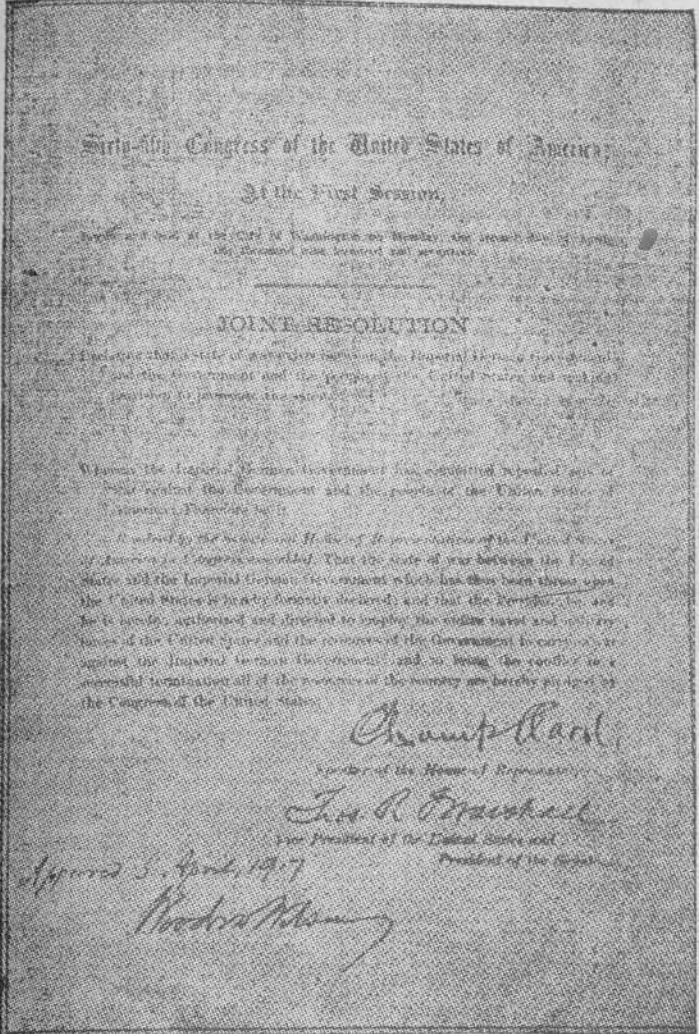 Sixty-fifth Congress of the United States of America;
At the First Session,
Begun and held at the City of Washington on Monday, the second day of April,
one thousand nine hundred and seventeen.
JOINT RESOLUTION
Declaring that a state of war exists between the Imperial German Government
and the Government and the people of the United States and making
provision to prosecute the same.
Whereas the Imperial German Government has committed repeated acts of
war against the Government and the people of the United States of
America: Therefore be it
Resolved by the Senate and House of Representatives of the United States
of America in Congress assembled, That the state of war between the United
States and the Imperial German Government which has thus been thrust upon
the United States is hereby formally declared; and that the President be, and
he is hereby, authorized and directed to employ the entire naval and military
forces of the United States and the resources of the Government to carry on war
against the Imperial German Government; and to bring the conflict to a
successful termination all of the resources of the country are hereby pledged by
the Congress of the United States.
Champ Clark
Speaker of the House of Representatives
Thos. R. Marshall
Vice President of the United States and
President of the Senate
Approved 6 April, 1917
Woodrow Wilson